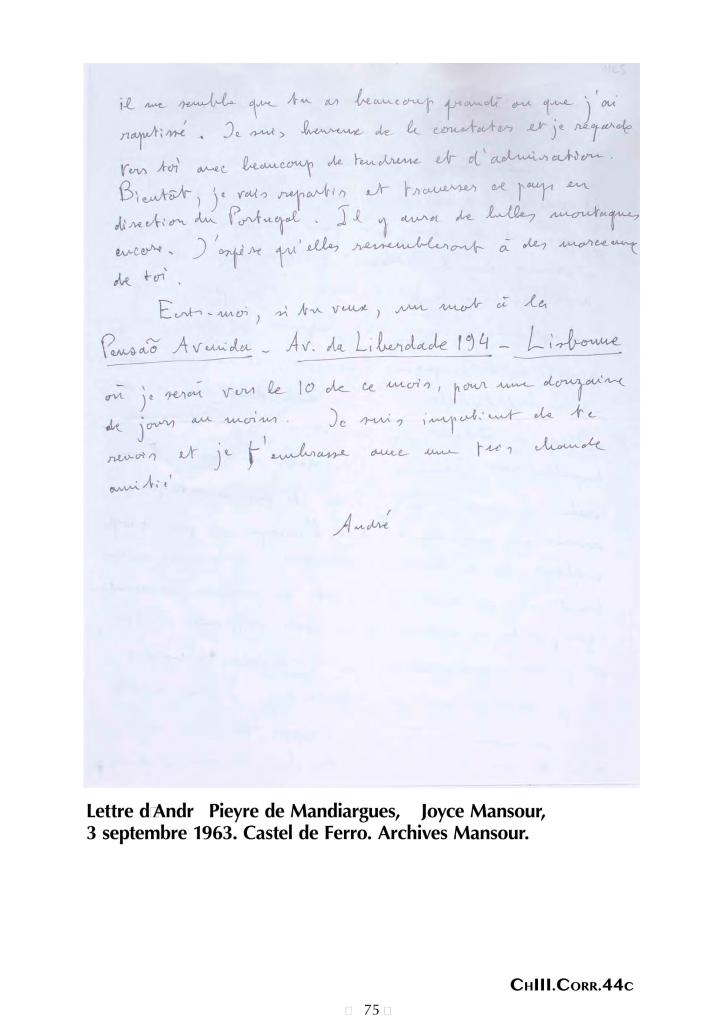 il me semble que tu as beaucoup grandi ou que j'ai
rapetissé. Je suis heureux de le constater et je regarde
vers toi avec beaucoup de tendresse et d'admiration.
Bientôt, je vais repartir et traverser ce pays en
direction du Portugal. Il y aura de belles montagnes
encore. J'espère qu'elles ressembleront à des morceaux
de toi.
Ecris-moi, si tu veux, un mot à la
Pensaõ Avenida - Av. da Liberdade 194 - Lisbonne
où je serai vers le 10 de ce mois, pour une douzaine
de jours au moins. Je suis impatient de te
revoir et je t'embrasse avec une très chaude
amitié
André
Lettre d Andr Pieyre de Mandiargues, Joyce Mansour,
3 septembre 1963. Castel de Ferro. Archives Mansour.
CHIII.CORR.44C
75